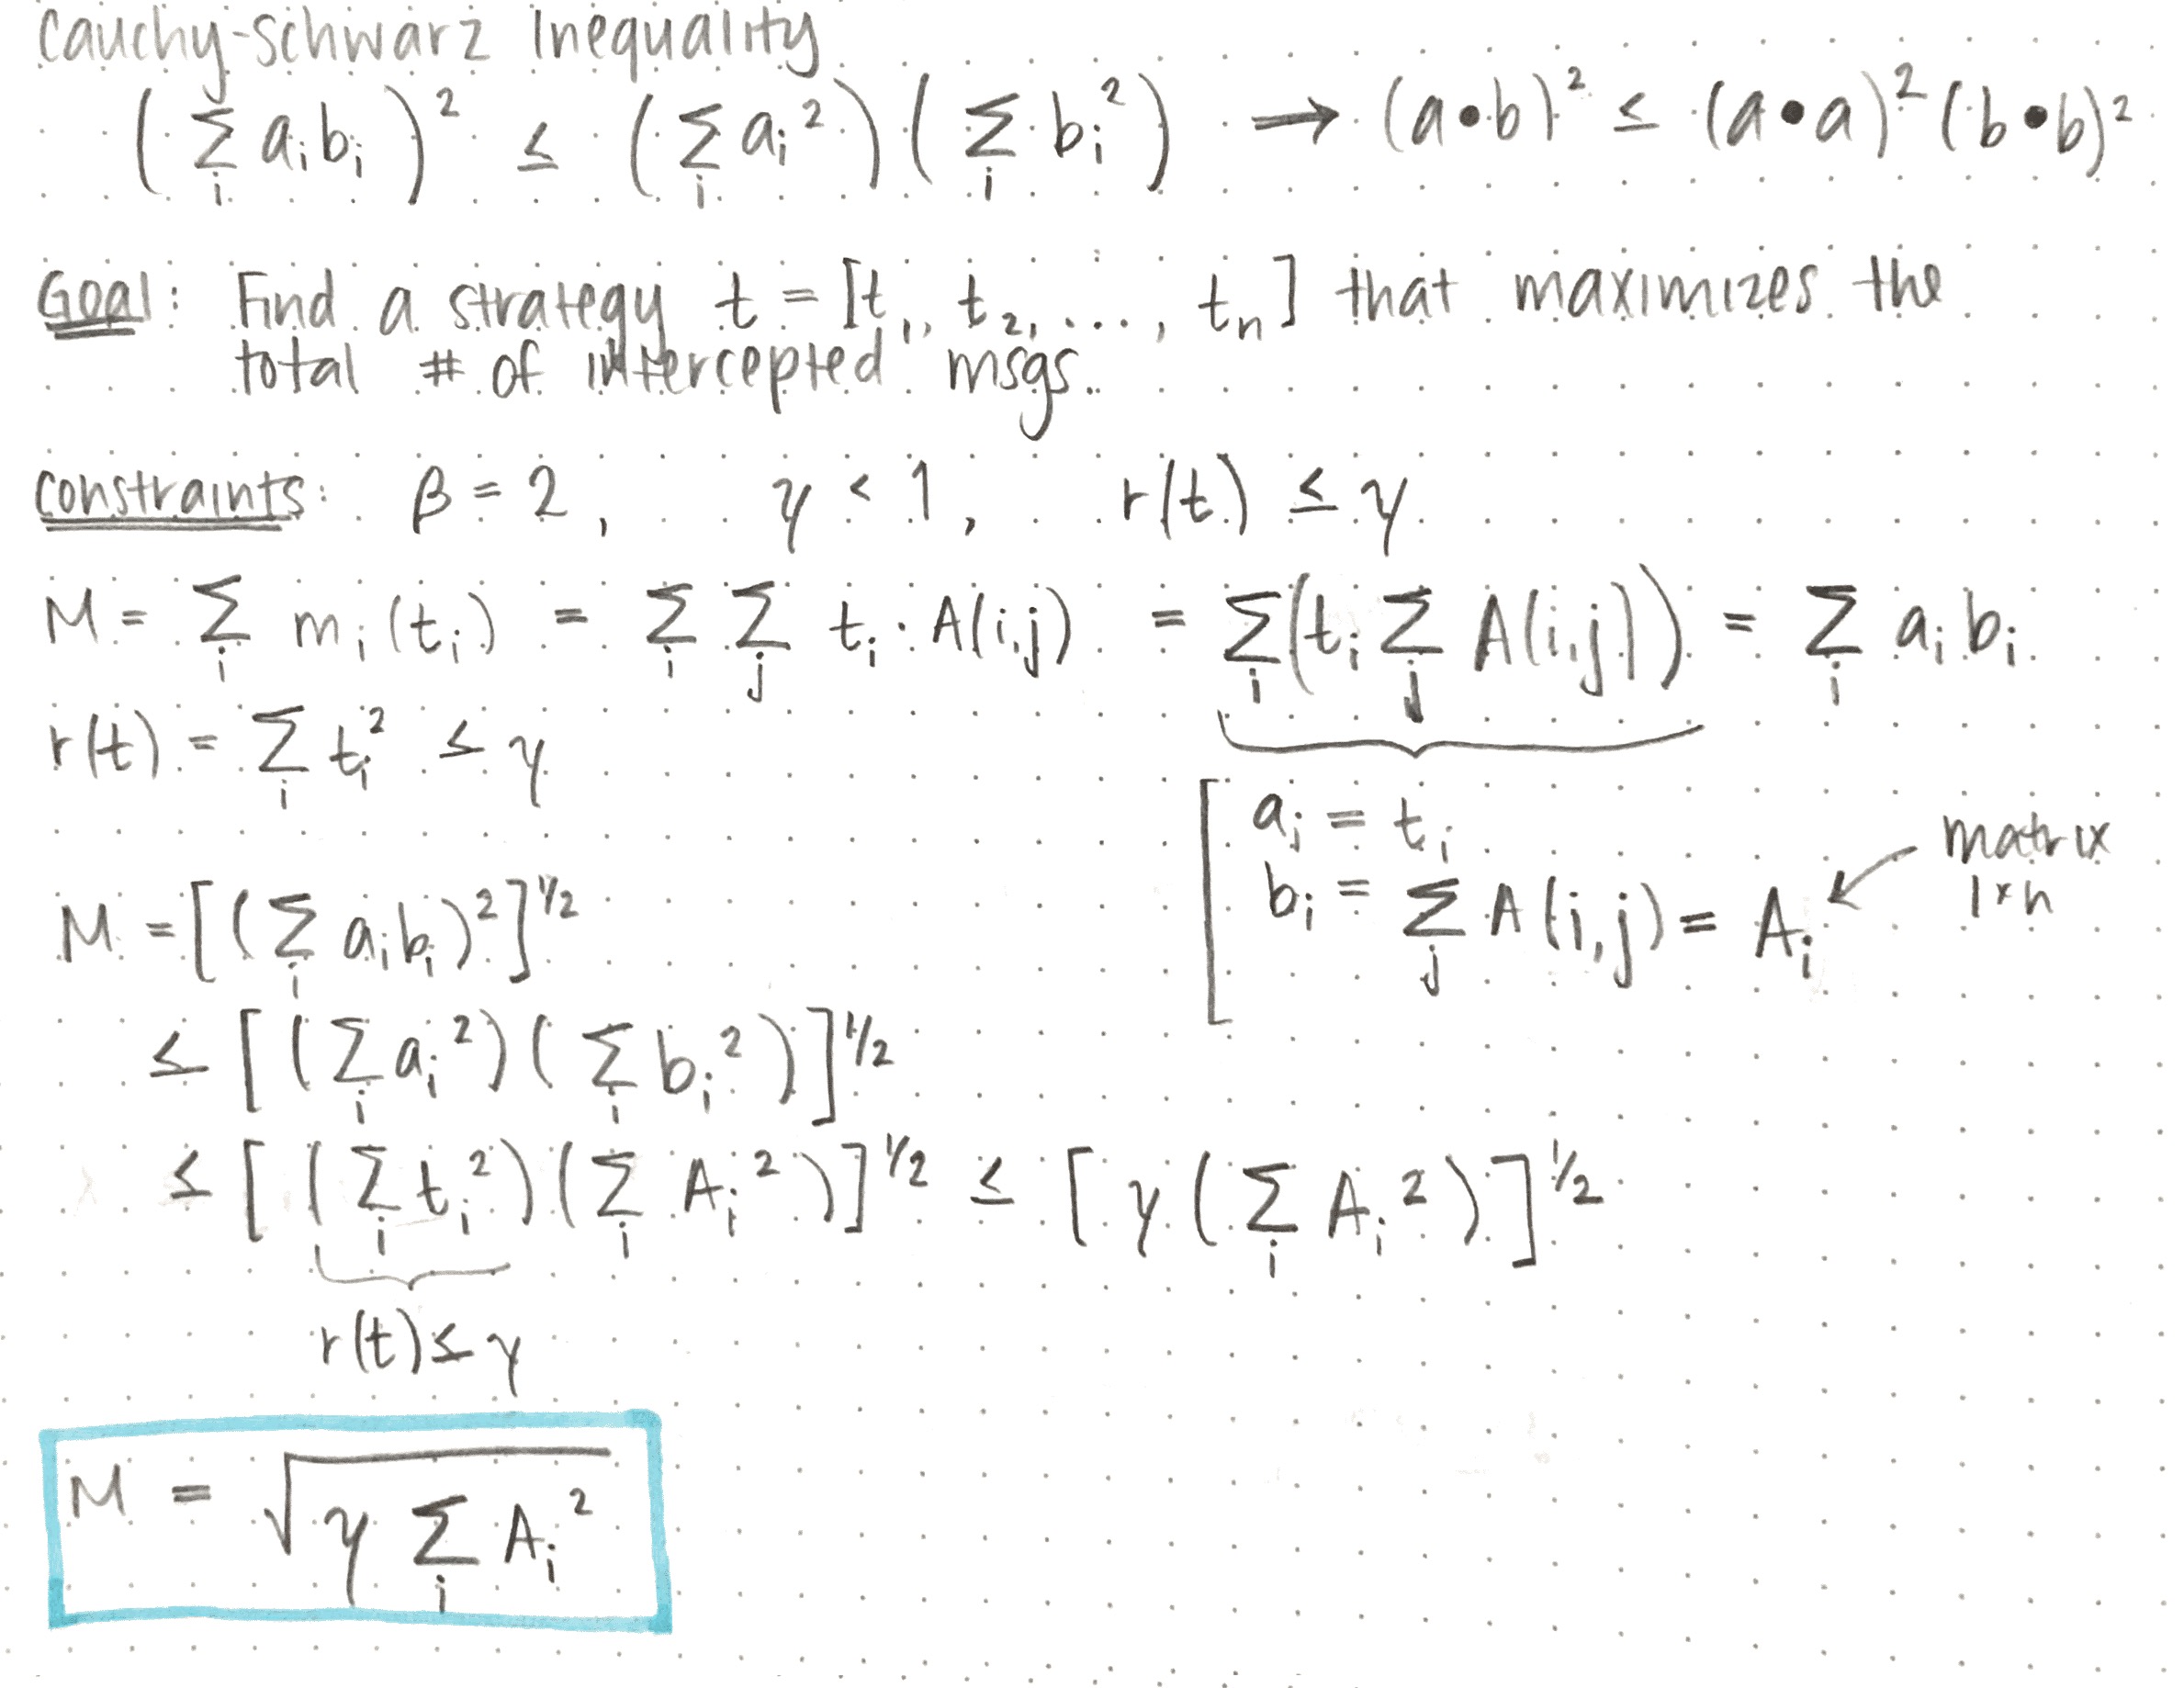 Cauchy-Schwarz Inequality
(Σ_i a_i b_i)² ≤ (Σ_i a_i²)(Σ_i b_i²) → (a•b)² ≤ (a•a)² (b•b)²
Goal: Find a strategy t = [t_1, t_2, ..., t_n] that maximizes the
total # of intercepted msgs.
Constraints: β = 2, γ < 1, r(t) ≤ γ
M = Σ_i m_i(t_i) = Σ_i Σ_j t_i · A(i,j) = Σ_i (t_i Σ_j A(i,j)) = Σ_i a_i b_i
r(t) = Σ_i t_i² ≤ γ
a_i = t_i
b_i = Σ_j A(i,j) = A_i
matrix
1×n
M = [(Σ_i a_i b_i)²]^1/2
≤ [(Σ_i a_i²)(Σ_i b_i²)]^1/2
≤ [(Σ_i t_i²)(Σ_i A_i²)]^1/2 ≤ [γ(Σ_i A_i²)]^1/2
r(t) ≤ γ
M = √(γ Σ_i A_i²)